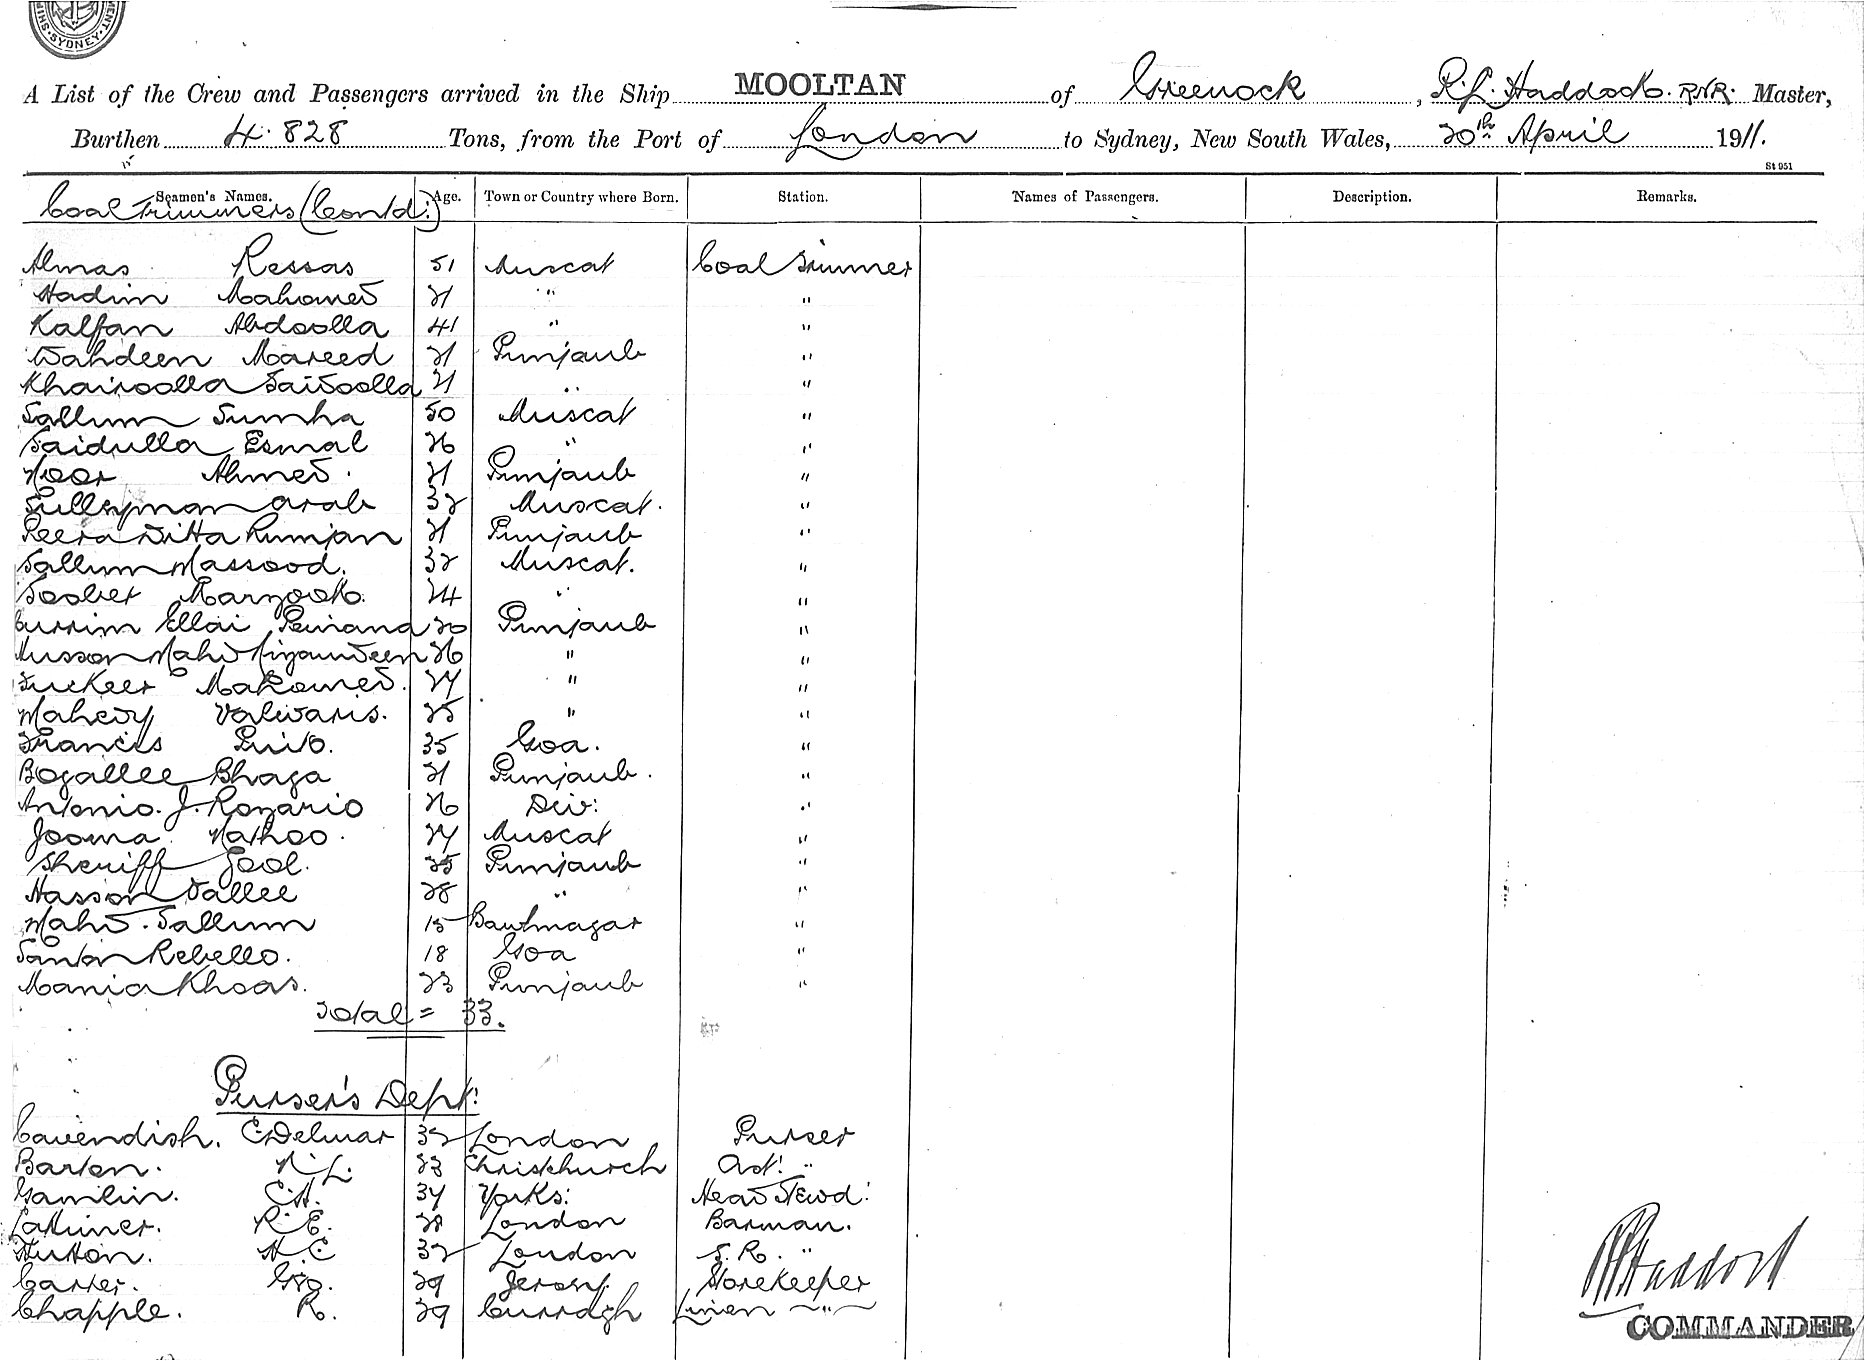 SYDNEY
A List of the Crew and Passengers arrived in the Ship MOOLTAN of Greenock, R.L. Haddock. RNR. Master,
Burthen 4.828 Tons, from the Port of London to Sydney, New South Wales, 20th April 1911.
St 951
Seamen's Names. Age. Town or Country where Born. Station. Names of Passengers. Description. Remarks.
Coal Trimmers (Contd.)
Almas Ressas 51 Muscat Coal Trimmer
Hadim Mahomed 21 " "
Kalfan Abdoolla 41 " "
Wahdeen Mareed 21 Punjaub "
Khairoolla Saidoolla 21 " "
Sallum Sumha 50 Muscat "
Saidulla Esmal 26 " "
Noor Ahmed. 21 Punjaub "
Sulleyman Arab 32 Muscat. "
Peera Ditta Rumjan 21 Punjaub "
Sallum Massood. 32 Muscat. "
Soobet Marzook. 24 " "
Currim Ellai 20 Punjaub "
Husson Mahd 26 " "
Mahomed. 27 " "
25 " "
Francis Pinto. 35 Goa. "
Bogallee Bhaga 21 Punjaub. "
Antonio. J. Rozario 26 Diu: "
Jooma Nathoo. 27 Muscat "
Sheriff Gool. 25 Punjaub "
Hasson Vallee 28 " "
Mahd. Sallum 15 Bawhnagar "
Santan Rebello. 18 Goa "
Mania Khoas. 23 Punjaub "
Total = 33.
Purser's Dept:
Cavendish. C. Delmar 32 London Purser
Barton. N. L. 23 Christchurch Ast: "
Gamlin. E.H. 37 Yorks: Head Stewd:
Lattimer. R. E. 28 London Barman.
Hutton. H C 32 London S.R. "
Carter. Geo. 29 Jersey. Storekeeper
Chapple. R. 29 Curragh Linen "
R L Haddock
COMMANDER